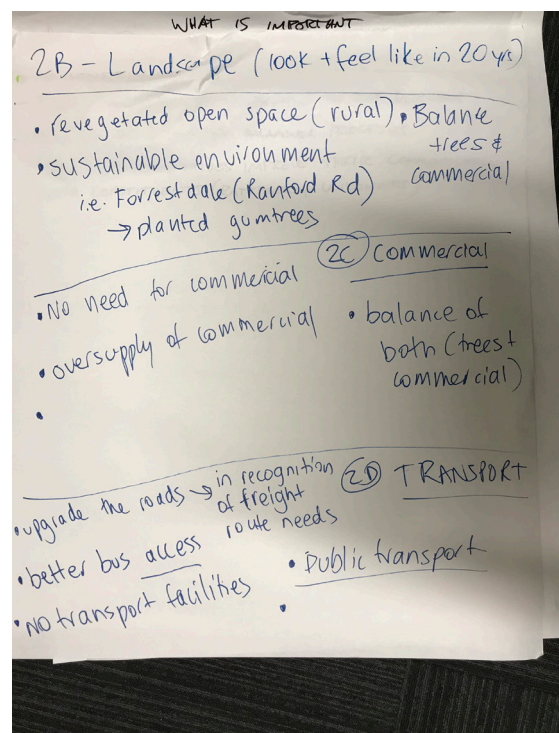 WHAT IS IMPORTANT
2B - Landscape (look + feel like in 20 yrs)
• revegetated open space (rural)
• sustainable environment
i.e. Forrestdale (Ranford Rd)
→ planted gumtrees
• Balance
trees &
commercial
2C Commercial
• No need for commercial
• oversupply of commercial
•
• balance of
both (trees +
commercial)
2D TRANSPORT
• upgrade the roads → in recognition
of freight
route needs
• better bus access
• No transport facilities
• Public transport
•